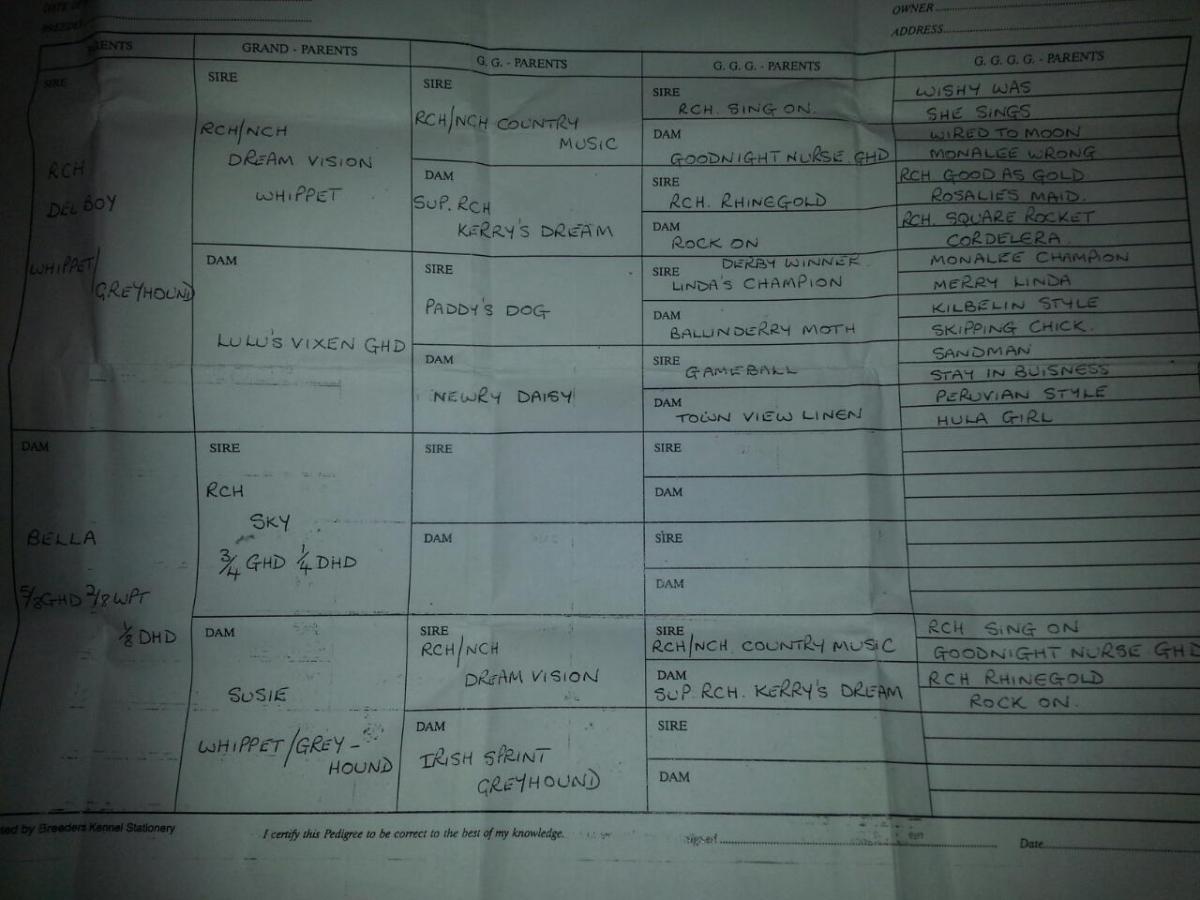 OWNER
ADDRESS
GRAND - PARENTS
G. G. - PARENTS
G. G. G. - PARENTS
G. G. G. G. - PARENTS
SIRE
RCH
DEL BOY
WHIPPET/
GREYHOUND
SIRE
RCH/NCH
DREAM VISION
WHIPPET
DAM
LULU'S VIXEN GHD
SIRE
RCH/NCH COUNTRY
MUSIC
DAM
SUP. RCH
KERRY'S DREAM
SIRE
PADDY'S DOG
DAM
NEWRY DAISY
SIRE
RCH. SING ON.
DAM
GOODNIGHT NURSE GHD
SIRE
RCH. RHINEGOLD
DAM
ROCK ON
DERBY WINNER
SIRE LINDA'S CHAMPION
DAM
BALLINDERRY MOTH
SIRE GAMEBALL
DAM
TOWN VIEW LINEN
WISHY WAS
SHE SINGS
WIRED TO MOON
MONALEE WRONG
RCH. GOOD AS GOLD
ROSALIES MAID.
RCH. SQUARE ROCKET
CORDELERA
MONALEE CHAMPION
MERRY LINDA
KILBELIN STYLE
SKIPPING CHICK.
SANDMAN
STAY IN BUISNESS
PERUVIAN STYLE
HULA GIRL
DAM
BELLA
5/8 GHD 2/8 WPT
1/8 DHD
SIRE
RCH
SKY
3/4 GHD 1/4 DHD
DAM
SUSIE
WHIPPET/GREY-
HOUND
SIRE
DAM
SIRE
RCH/NCH
DREAM VISION
DAM
IRISH SPRINT
GREYHOUND
SIRE
DAM
SIRE
DAM
SIRE
RCH/NCH. COUNTRY MUSIC
DAM
SUP. RCH. KERRY'S DREAM
SIRE
DAM
RCH SING ON
GOODNIGHT NURSE GHD
RCH RHINEGOLD
ROCK ON.
by Breeders Kennel Stationery
I certify this Pedigree to be correct to the best of my knowledge.
signed
Date